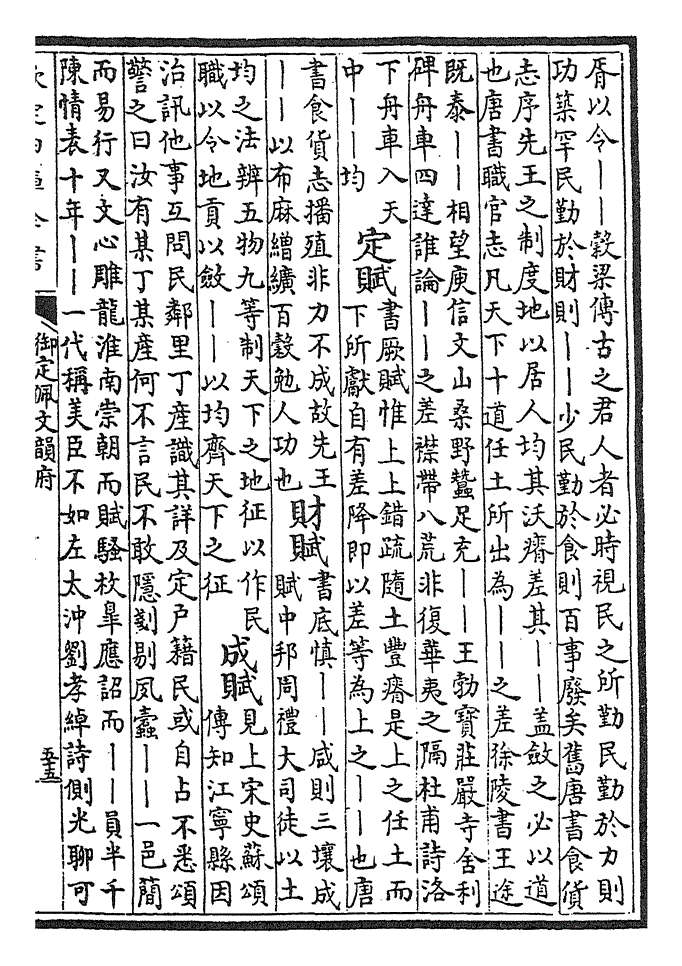 胥以令｜｜榖梁傳古之君人者必時視民之所勤民勤於力則
功築罕民勤於財則｜｜少民勤於食則百事廢矣舊唐書食貨
志序先王之制度地以居人均其沃瘠差其｜｜蓋斂之必以道
也唐書職官志凡天下十道任土所出為｜｜之差徐陵書王途
既泰｜｜相望庾信文山桑野蠶足充｜｜王勃寶莊嚴寺舍利
碑舟車四達誰論｜｜之差襟帶八荒非復華夷之隔杜甫詩洛
下舟車入天
中｜｜均
定賦
書厥賦惟上上錯疏隨土豐瘠是上之任土而
下所獻自有差降即以差等為上之｜｜也唐
書食貨志播殖非力不成故先王
｜｜以布麻繒纊百榖勉人功也
財賦
書底慎｜｜咸則三壤成
賦中邦周禮大司徒以土
均之法辨五物九等制天下之地征以作民
職以令地貢以斂｜｜以均齊天下之征
成賦
見上宋史蘇頌
傳知江寧縣因
治訊他事互問民鄰里丁產識其詳及定户籍民或自占不悉頌
警之曰汝有某丁某產何不言民不敢隱剗剔夙蠹｜｜一邑簡
而易行又文心雕龍淮南崇朝而賦騷枚臯應詔而｜｜員半千
陳情表十年｜｜一代稱美臣不如左太沖劉孝綽詩側光聊可
欽定四庫全書
御定佩文韻府
五十五